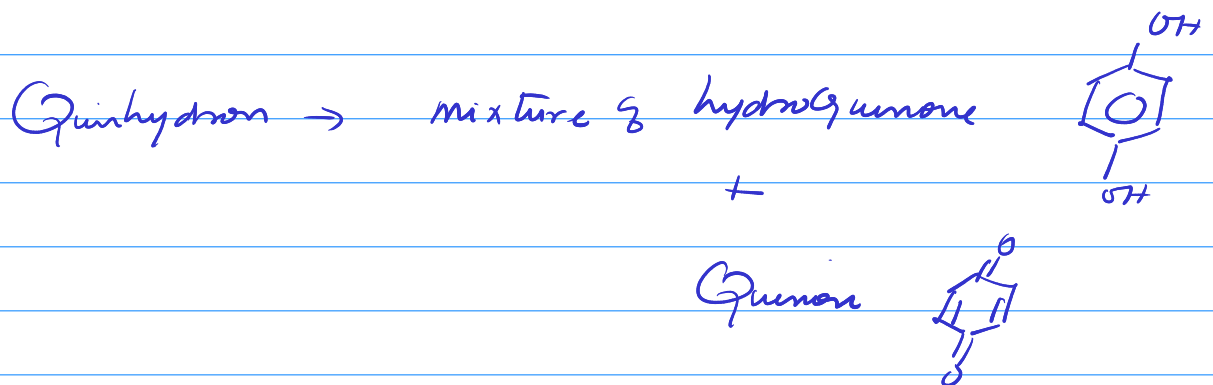 OH
Quinhydron → mixture of hydroquinone
OH
+
O
Quinon
O